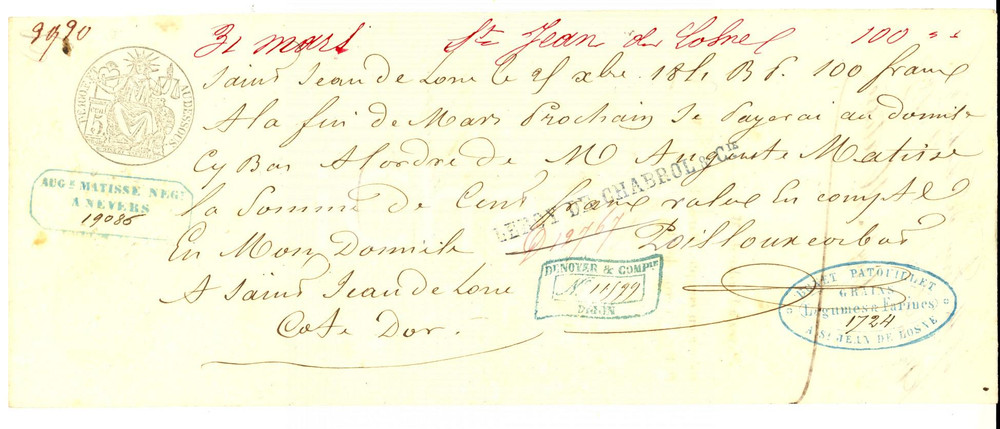 3920
31 mars St Jean de Losne 100 " "
Saint Jean de Lone le 25 xbre 1851 B P. 100 francs
A la fin de Mars Prochain Je Payerai au domicile
Cy Bas A lordre de M Auguste Matisse
la Somme de Cent francs valeur En compte
En Mon Domicile
A Saint Jean de Lone
Cote Dor.
AUGte MATISSE NEGt
A NEVERS
19086
LEROY DE CHABROL & CIE
DENOYER & COMPIE
No 11599
DIJON
PATOUILLET
GRAINS
Légumes & Farines
1724
A St JEAN DE LOSNE